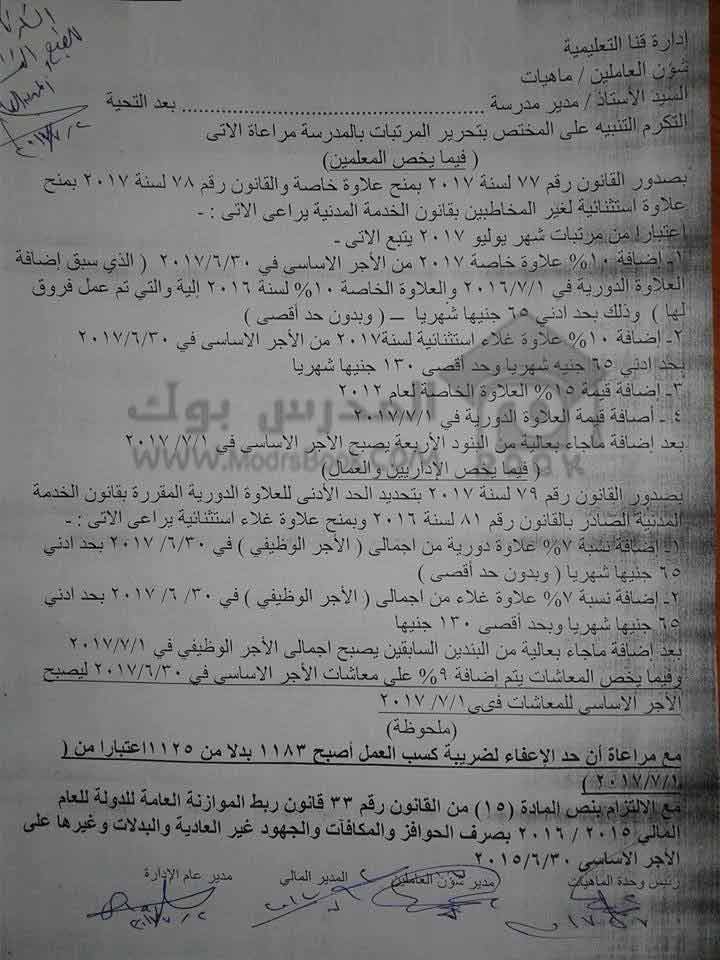 إدارة قنا التعليمية
شؤن العاملين / ماهيات
السيد الأستاذ / مدير مدرسة ........................................ بعد التحية
التكرم التنبيه على المختص بتحرير المرتبات بالمدرسة مراعاة الاتى
( فيما يخص المعلمين)
بصدور القانون رقم ٧٧ لسنة ٢٠١٧ بمنح علاوة خاصة والقانون رقم ٧٨ لسنة ٢٠١٧ بمنح
علاوة استثنائية لغير المخاطبين بقانون الخدمة المدنية يراعى الاتى : -
اعتبارا من مرتبات شهر يوليو ٢٠١٧ يتبع الاتى -
١- إضافة ١٠% علاوة خاصة ٢٠١٧ من الأجر الاساسى في ٢٠١٧/٦/٣٠ ( الذي سبق إضافة
العلاوة الدورية في ٢٠١٦/٧/١ والعلاوة الخاصة ١٠% لسنة ٢٠١٦ إلية والتي تم عمل فروق
لها ) وذلك بحد ادني ٦٥ جنيها شهريا – ( وبدون حد أقصى )
٢- إضافة ١٠% علاوة غلاء استثنائية لسنة٢٠١٧ من الأجر الاساسى في ٢٠١٧/٦/٣٠
بحد ادني ٦٥ جنيه شهريا وحد أقصى ١٣٠ جنيها شهريا
٣- إضافة قيمة ١٥% العلاوة الخاصة لعام ٢٠١٢
٤- أضافة قيمة العلاوة الدورية في ٢٠١٧/٧/١
بعد إضافة ماجاء بعالية من البنود الأربعة يصبح الأجر الاساسى في ٧/١/ ٢٠١٧
( فيما يخص الإداريين والعمال)
بصدور القانون رقم ٧٩ لسنة ٢٠١٧ بتحديد الحد الأدنى للعلاوة الدورية المقررة بقانون الخدمة
المدنية الصادر بالقانون رقم ٨١ لسنة ٢٠١٦ وبمنح علاوة غلاء استثنائية يراعى الاتى : -
١- إضافة نسبة ٧% علاوة دورية من اجمالى ( الأجر الوظيفي ) في ٦/٣٠/ ٢٠١٧ بحد ادني
٦٥ جنيها شهريا ( وبدون حد أقصى )
٢- إضافة نسبة ٧% علاوة غلاء من اجمالى ( الأجر الوظيفي ) في ٣٠/ ٦/ ٢٠١٧ بحد ادني
٦٥ جنيها شهريا وبحد أقصى ١٣٠ جنيها
بعد إضافة ماجاء بعالية من البندين السابقين يصبح اجمالى الأجر الوظيفي في ٢٠١٧/٧/١
وفيما يخص المعاشات يتم إضافة ٩% على معاشات الأجر الاساسى في ٢٠١٧/٦/٣٠ ليصبح
الأجر الاساسى للمعاشات فى ٧/١/ ٢٠١٧
(ملحوظة)
مع مراعاة أن حد الإعفاء لضريبة كسب العمل أصبح ١١٨٣ بدلا من ١١٢٥اعتبارا من (
٢٠١٧/٧/١ )
مع الالتزام بنص المادة (١٥) من القانون رقم ٣٣ قانون ربط الموازنة العامة للدولة للعام
المالي ٢٠١٥ / ٢٠١٦ بصرف الحوافز والمكافآت والجهود غير العادية والبدلات وغيرها على
الأجر الاساسى ٢٠١٥/٦/٣٠
رئيس وحدة الماهيات مدير شؤن العاملين المدير المالي مدير عام الإدارة
المدرس بوك
www.ModrsBook.com